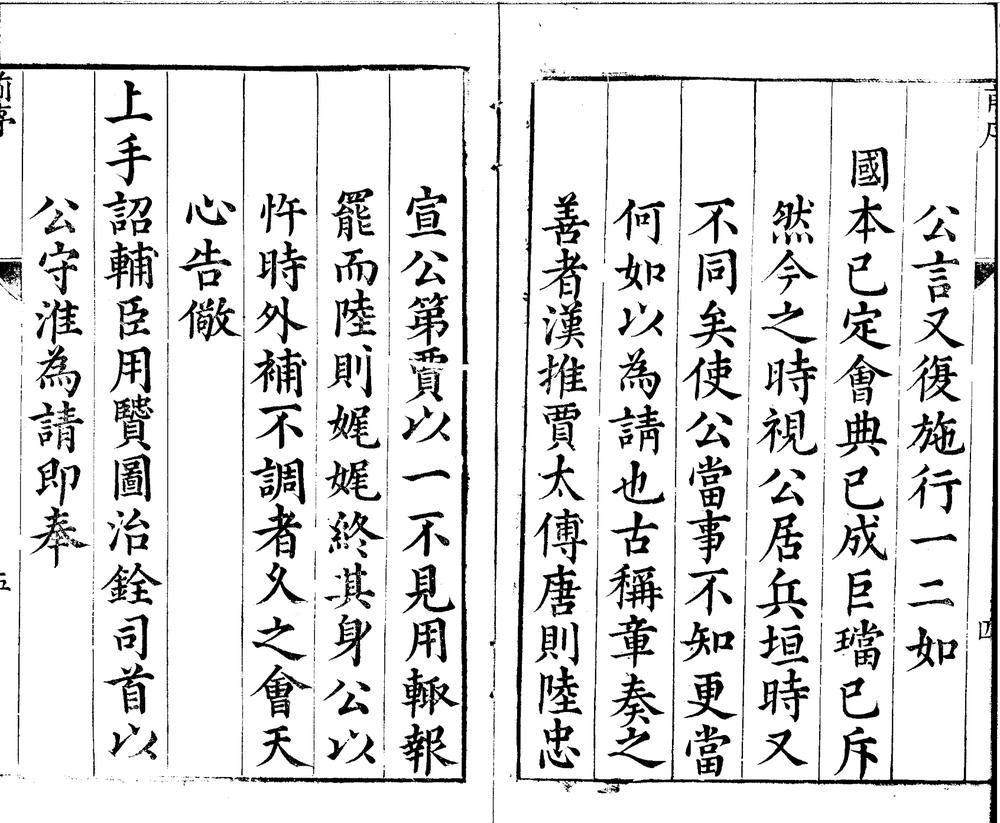 公言又復施行一二如
國本已定會典已成巨璫已斥
然今之時視公居兵垣時又
不同矣使公當事不知更當
何如以為請也古稱章奏之
善者漢推賈太傅唐則陸忠
四
宣公第賈以一不見用輙報
罷而陸則娓娓終其身公以
忤時外補不調者久之會天
心告儆
上手詔輔臣用賢圖治銓司首以
公守淮為請即奉
前序
五